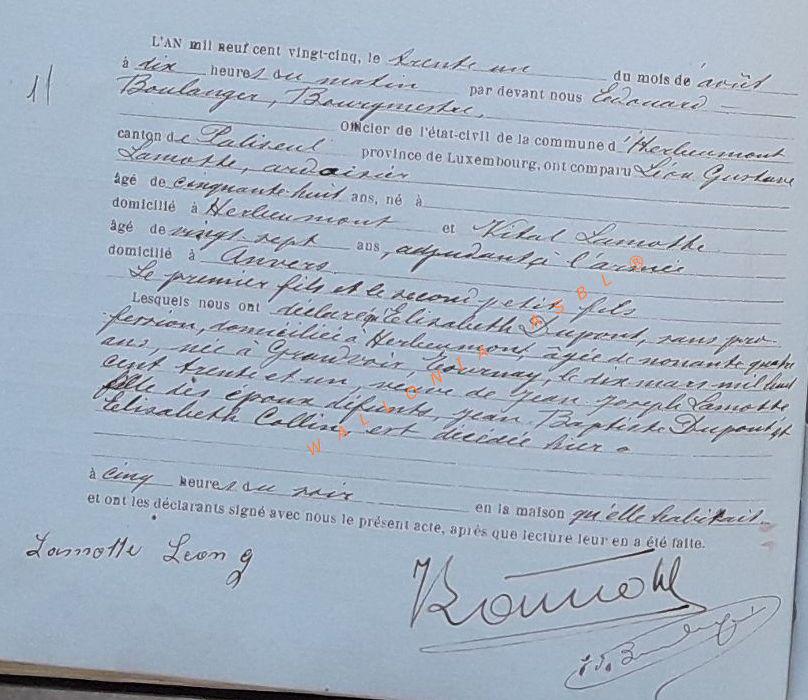 11
L'AN mil neuf cent vingt-cinq, le trente un du mois de août
à dix heures du matin par devant nous Edouard
Boulanger, Bourgmestre,
Officier de l'état-civil de la commune d'Herbeumont
canton de Paliseul province de Luxembourg, ont comparu Léon Gustave
Lamotte, ardoisier
âgé de cinquante-huit ans, né à
domicilié à Herbeumont et Vital Lamotte
âgé de vingt sept ans, adjudant à l'armée
domicilié à Anvers
Le premier fils et le second petit fils
Lesquels nous ont déclaré qu'Elisabeth Dupont, sans pro-
fession, domiciliée à Herbeumont, âgée de nonante quatre
ans, née à Grandvoir, Tournay, le dix mars mil huit
cent trente et un, veuve de Jean Joseph Lamotte
fille des époux défunts, Jean Baptiste Dupont et
Elisabeth Collin, est décédée hier
à cinq heures du soir en la maison qu'elle habitait
et ont les déclarants signé avec nous le présent acte, après que lecture leur en a été faite.
Lamotte Leon g
WALLONIA ASBL ®